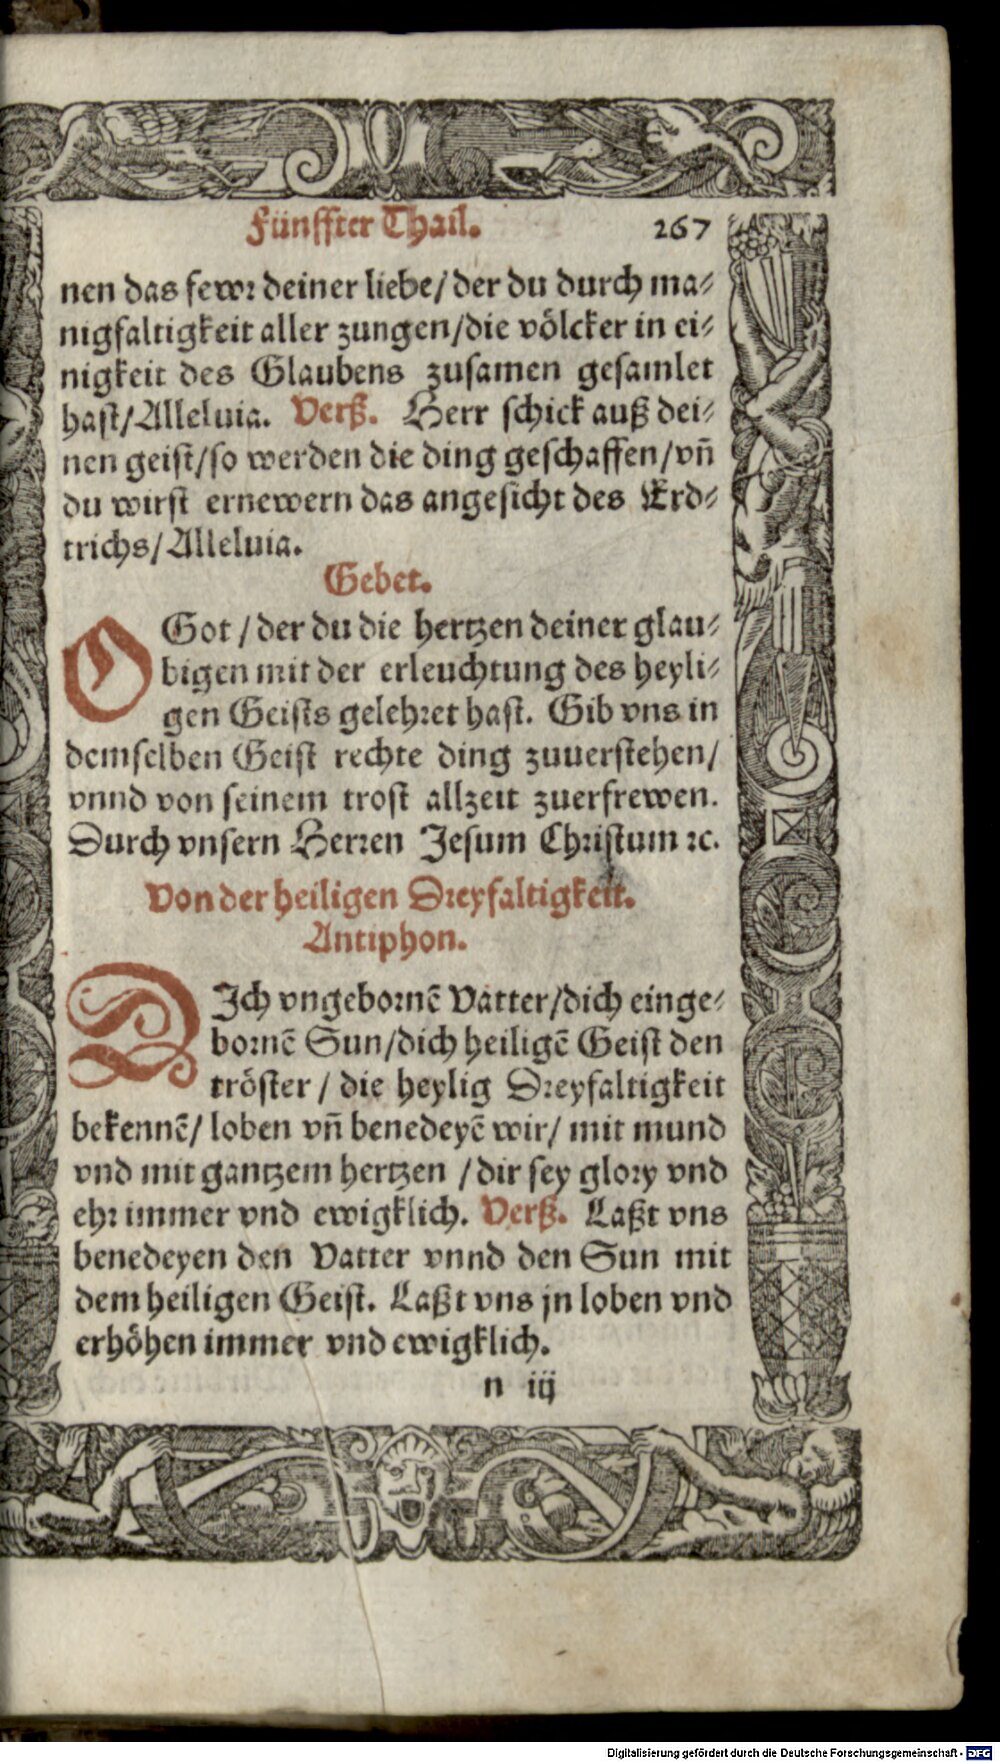 Fünffter Thail. 267
nen das fewr deiner liebe/ der du durch ma⸗
nigfaltigkeit aller zungen/ die völcker in ei⸗
nigkeit des Glaubens zusamen gesamlet
hast/ Alleluia. Verß. Herr schick auß dei⸗
nen geist/ so werden die ding geschaffen/ vñ
du wirst ernewern das angesicht des Erd⸗
trichs/ Alleluia.
Gebet.
O Got / der du die hertzen deiner glau⸗
bigen mit der erleuchtung des heyli⸗
gen Geists gelehret hast. Gib vns in
demselben Geist rechte ding zuuerstehen/
vnnd von seinem trost allzeit zuerfrewen.
Durch vnsern Herren Jesum Christum ꝛc.
Von der heiligen Dreyfaltigkeit.
Antiphon.
DIch vngebornē Vatter/ dich einge⸗
bornē Sun/ dich heiligē Geist den
tröster / die heylig Dreyfaltigkeit
bekennē/ loben vñ benedeyē wir/ mit mund
vnd mit gantzem hertzen / dir sey glory vnd
ehr immer vnd ewigklich. Verß. Laßt vns
benedeyen den Vatter vnnd den Sun mit
dem heiligen Geist. Laßt vns jn loben vnd
erhöhen immer vnd ewigklich.
n iij
Digitalisierung gefördert durch die Deutsche Forschungsgemeinschaft - DFG